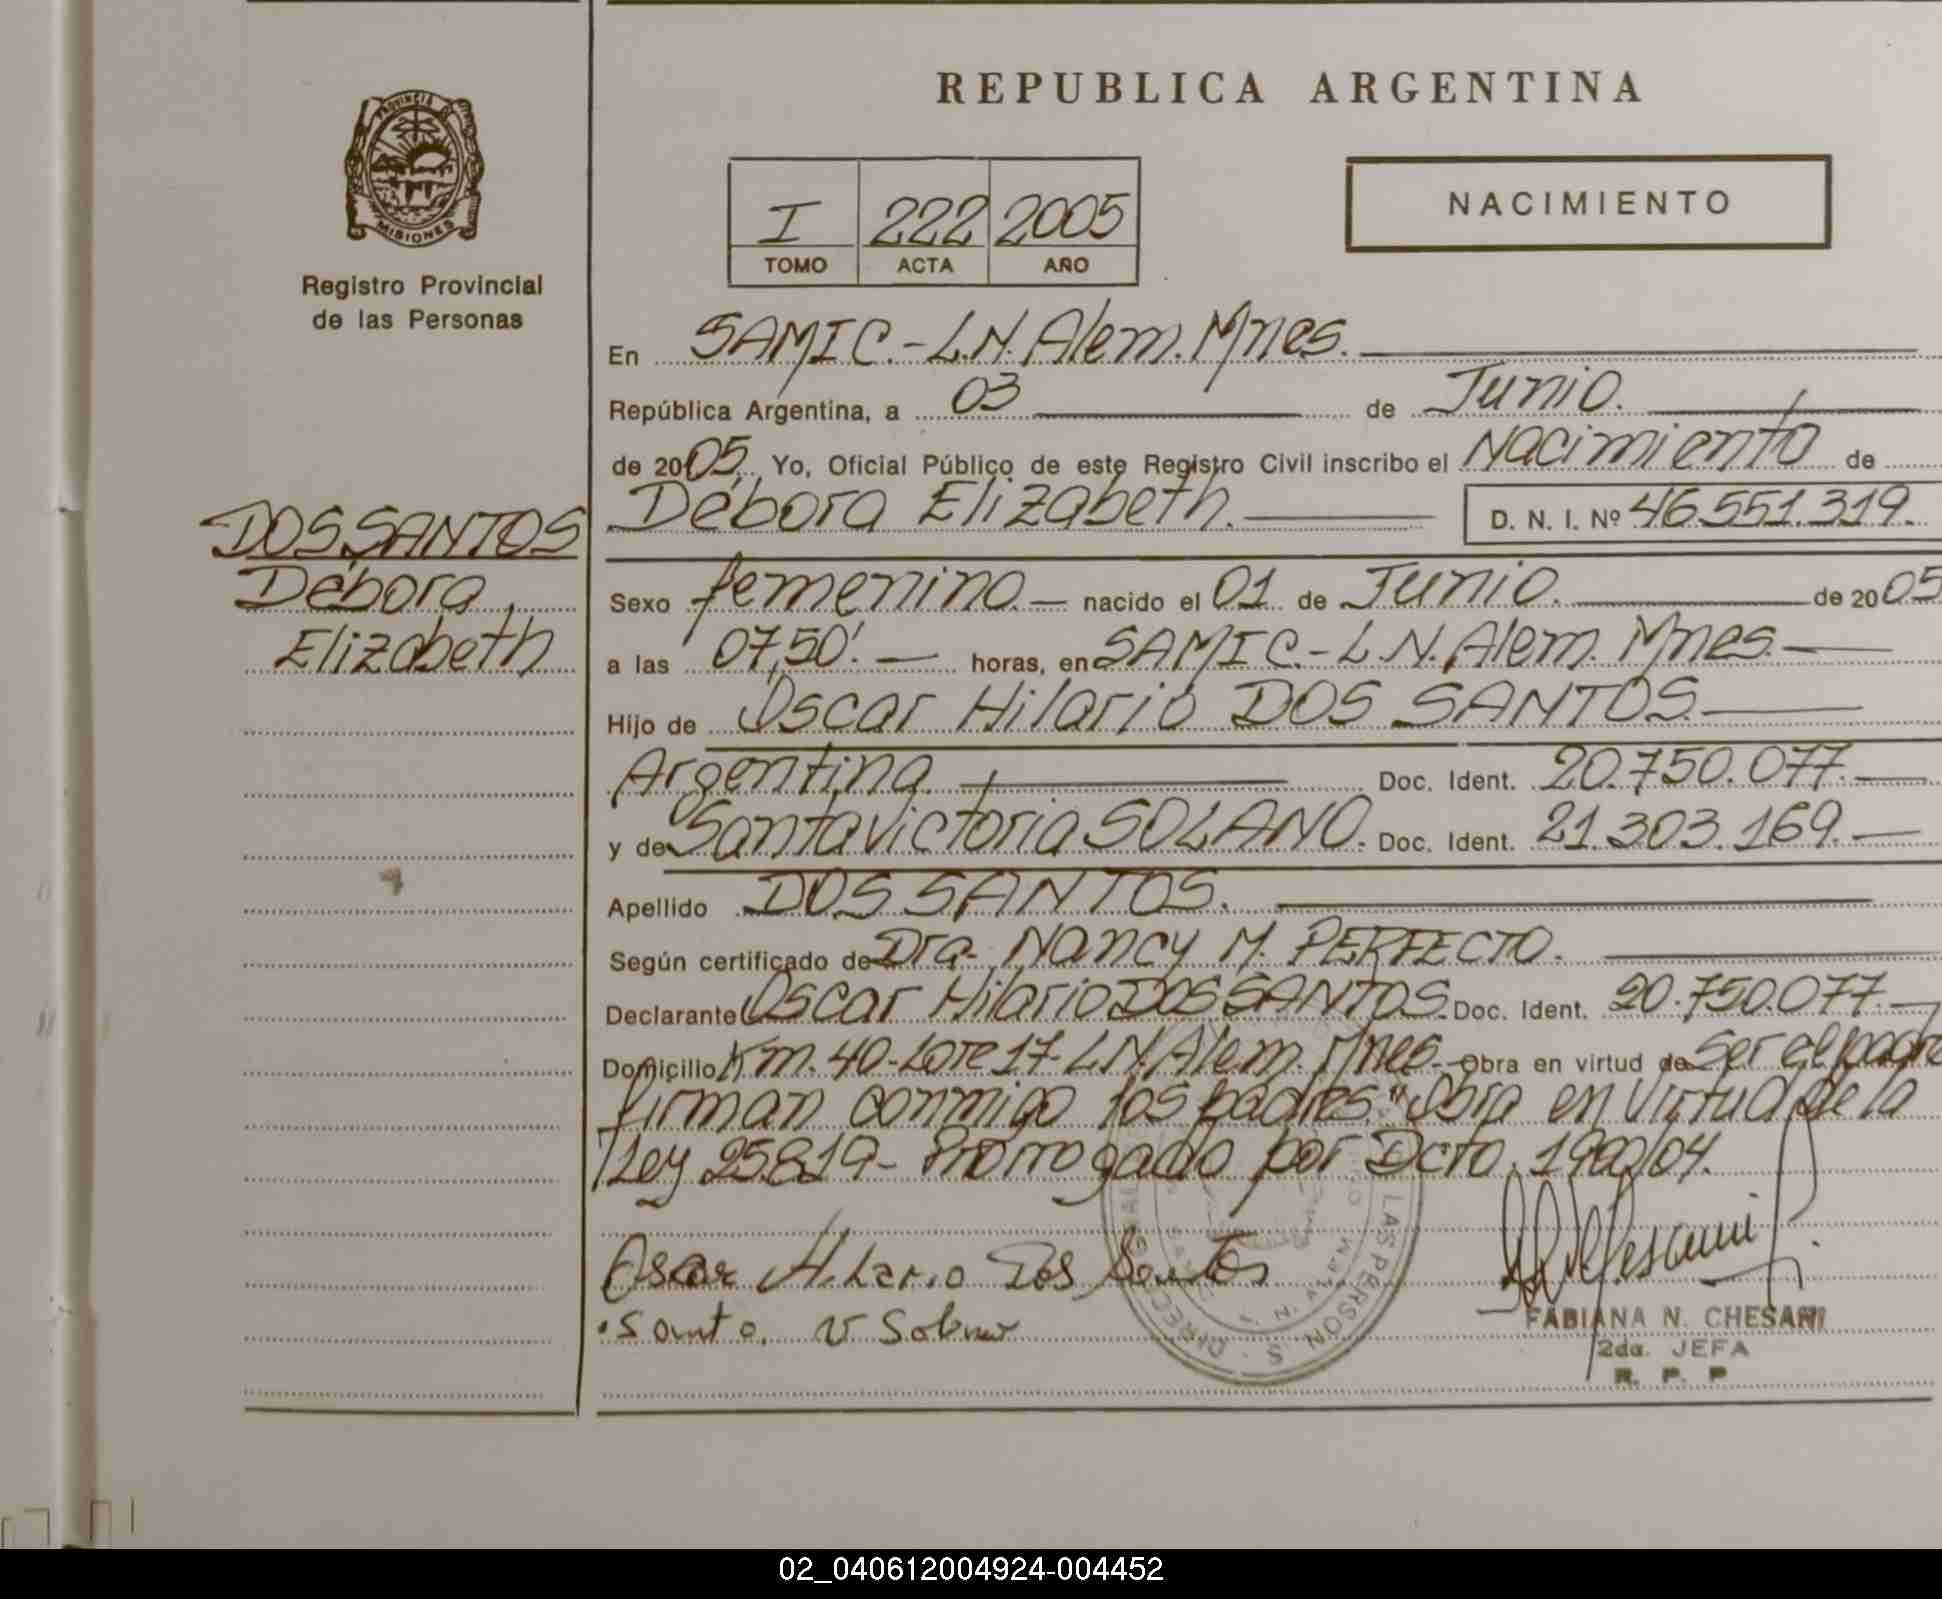 REPUBLICA ARGENTINA
PROVINCIA DE
MISIONES
Registro Provincial
de las Personas
I 222 2005
TOMO ACTA AÑO
NACIMIENTO
En SAMIC.-L.N.Alem.Mnes.
República Argentina, a 03 de Junio.
de 2005. Yo, Oficial Público de este Registro Civil inscribo el Nacimiento de
Débora Elizabeth. D. N. I. Nº 46.551.319.
DOS SANTOS
Débora
Elizabeth
Sexo femenino.- nacido el 01 de Junio. de 2005
a las 07,50'.- horas, en SAMIC.-L.N.Alem. Mnes.-
Hijo de Oscar Hilario DOS SANTOS.
Argentina. Doc. Ident. 20.750.077.-
y de Santa Victoria SOLANO. Doc. Ident. 21.303.169.-
Apellido DOS SANTOS.
Según certificado de Dra. Nancy M. PERFECTO.
Declarante Oscar Hilario DOS SANTOS. Doc. Ident. 20.750.077.-
Domicilio Km.40-Lote 17-L.N.Alem. Mnes.- Obra en virtud de Ser el padre
firman conmigo los padres." Obra en Virtud de la
Ley 25.819- Prorrogado por Dcto. 1900/04.
Oscar Hilario Dos Santos
Santa V Solano
FABIANA N. CHESANI
2da. JEFA
R. P. P
02_040612004924-004452